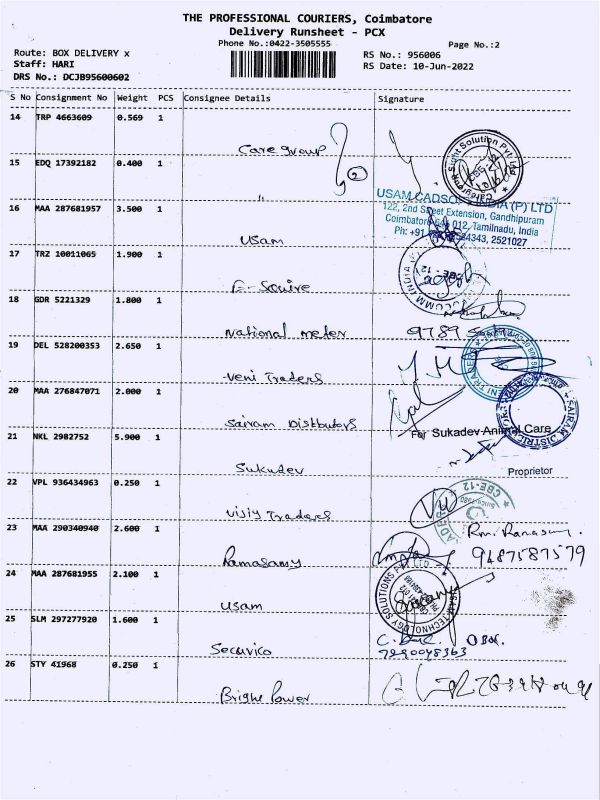 THE PROFESSIONAL COURIERS, Coimbatore
Delivery Runsheet - PCX
Phone No.:0422-3505555
Page No.:2
Route: BOX DELIVERY x
Staff: HARI
DRS No.: DCJB95600602
RS No.: 956006
RS Date: 10-Jun-2022
S No Consignment No Weight PCS Consignee Details Signature
14 TRP 4663609 0.569 1
Care group
15 EDQ 17392182 0.400 1
2
"
16 MAA 287681957 3.500 1
USAM CADSOL INDIA (P) LTD
122, 2nd Street Extension, Gandhipuram
Coimbatore 641 012, Tamilnadu, India
4343, 2521027
Usam
17 TRZ 10011065 1.900 1
E-Squire
18 GDR 5221329 1.800 1
National meter 9789
19 DEL 528200353 2.650 1
Veni Traders
20 MAA 276847071 2.000 1
Sairam Distbutors
For Sukadev Animal Care
21 NKL 2982752 5.900 1
Sukudev
Proprietor
22 VPL 936434963 0.250 1
CBE-12
Vijiy Traders
23 MAA 290340940 2.600 1
Ramasamy 9487587579
24 MAA 287681955 2.100 1
Usam
25 SLM 297277920 1.600 1
Secuvico
26 STY 41968 0.250 1
Brighe Power